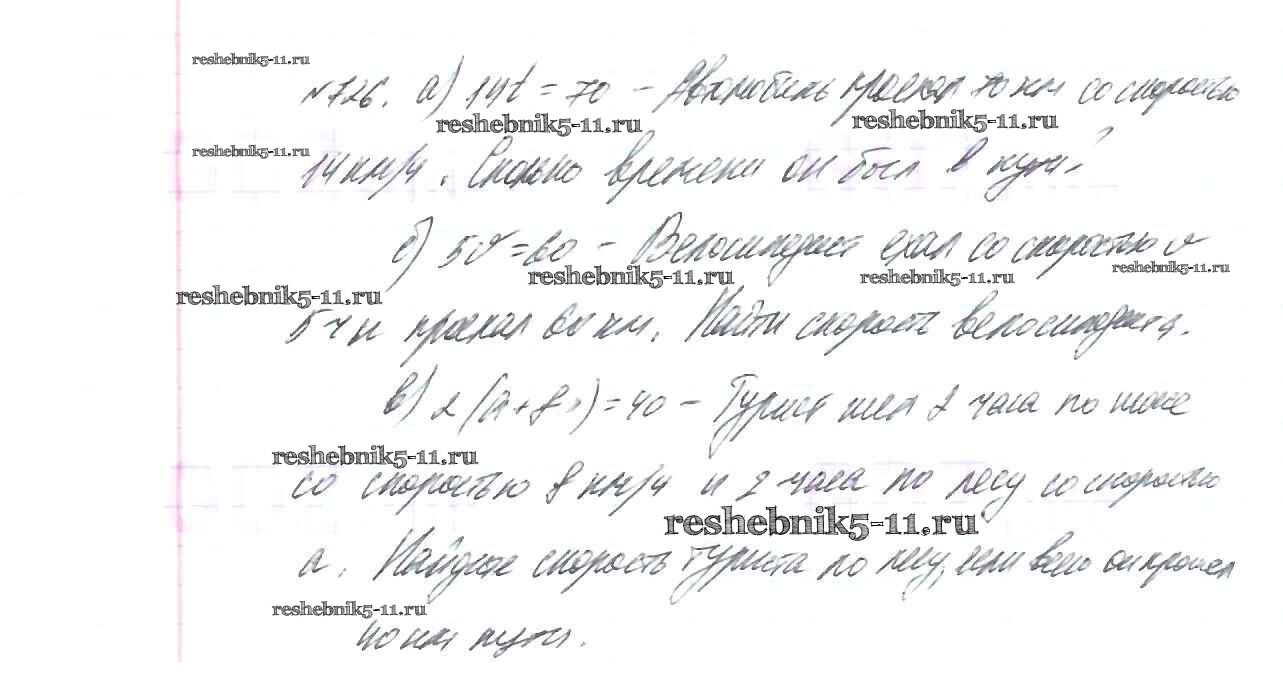 reshebnik5-11.ru
№726. а) 14t = 70 – Автомобиль проехал 70 км со скоростью
reshebnik5-11.ru reshebnik5-11.ru
reshebnik5-11.ru
14 км/ч. Сколько времени он был в пути?
б) 5v = 60 – Велосипедист ехал со скоростью v
reshebnik5-11.ru reshebnik5-11.ru reshebnik5-11.ru
reshebnik5-11.ru
5 ч и проехал 60 км. Найти скорость велосипедиста.
в) 2(a + 8) = 40 – Турист шел 2 часа по
reshebnik5-11.ru
со скоростью 8 км/ч и 2 часа по лесу со скоростью
reshebnik5-11.ru
a. Найдите скорость туриста по лесу, если всего он прошел
reshebnik5-11.ru
40 км пути.